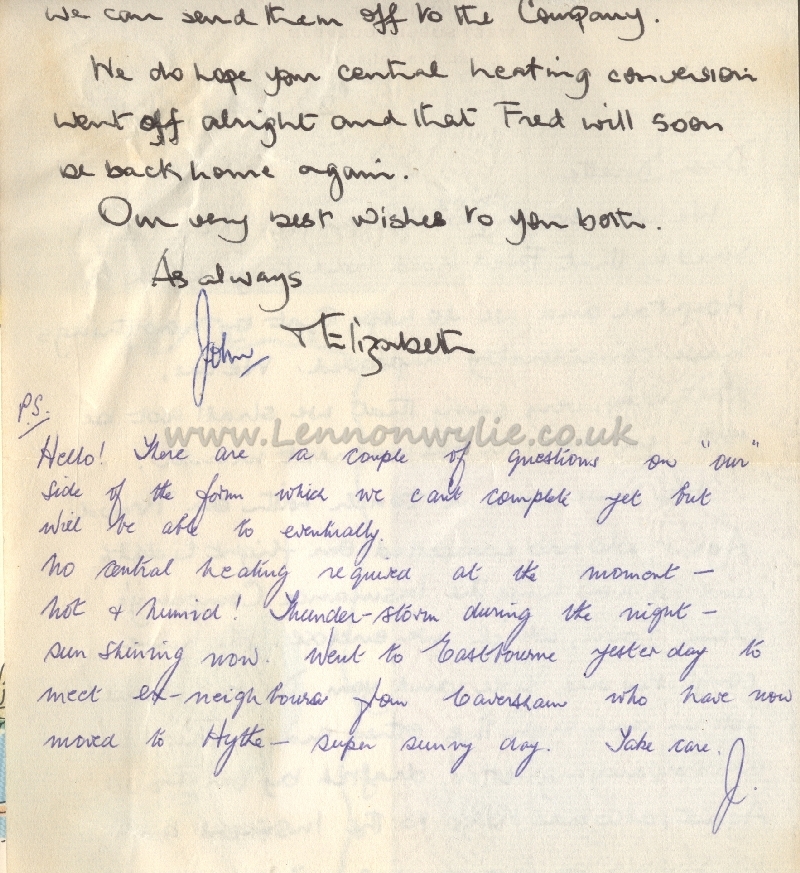 we can send them off to the Company.
We do hope your central heating conversion
went off alright and that Fred will soon
be back home again.
Our very best wishes to you both.
As always
John & Elizabeth
P.S.
www.Lennonwylie.co.uk
Hello! There are a couple of questions on "our"
side of the form which we can't complete yet but
will be able to eventually.
No central heating required at the moment –
hot & humid! Thunder-storm during the night –
sun shining now. Went to Eastbourne yesterday to
meet ex-neighbours from Caversham who have now
moved to Hythe – super sunny day. Take care.
J.